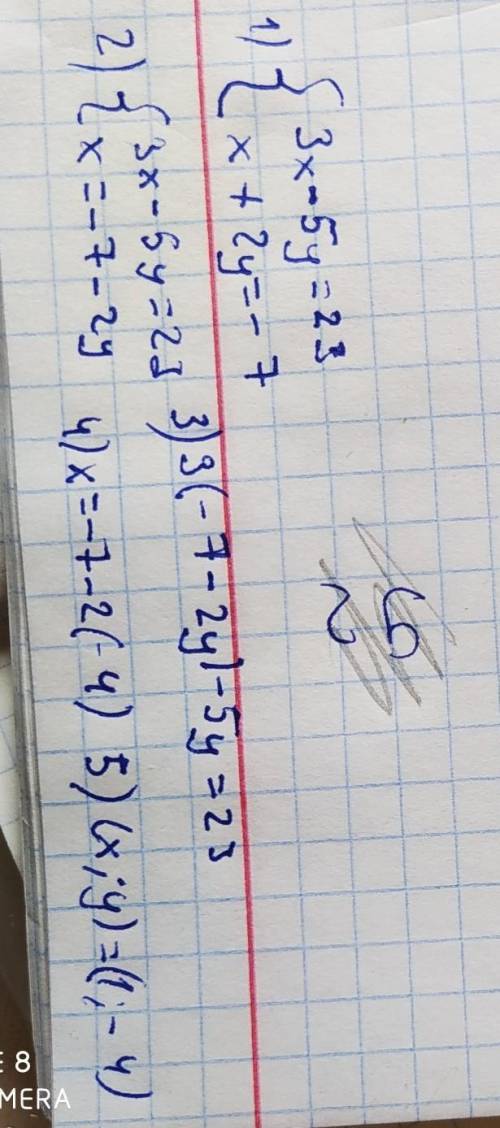 1) { 3x - 5y = 23
x + 2y = - 7
2) { 3x - 5y = 23
x = - 7 - 2y
3) 3(- 7 - 2y) - 5y = 23
4) x = - 7 - 2(- 4)
5) (x; y) = (1; - 4)
E 8
MERA